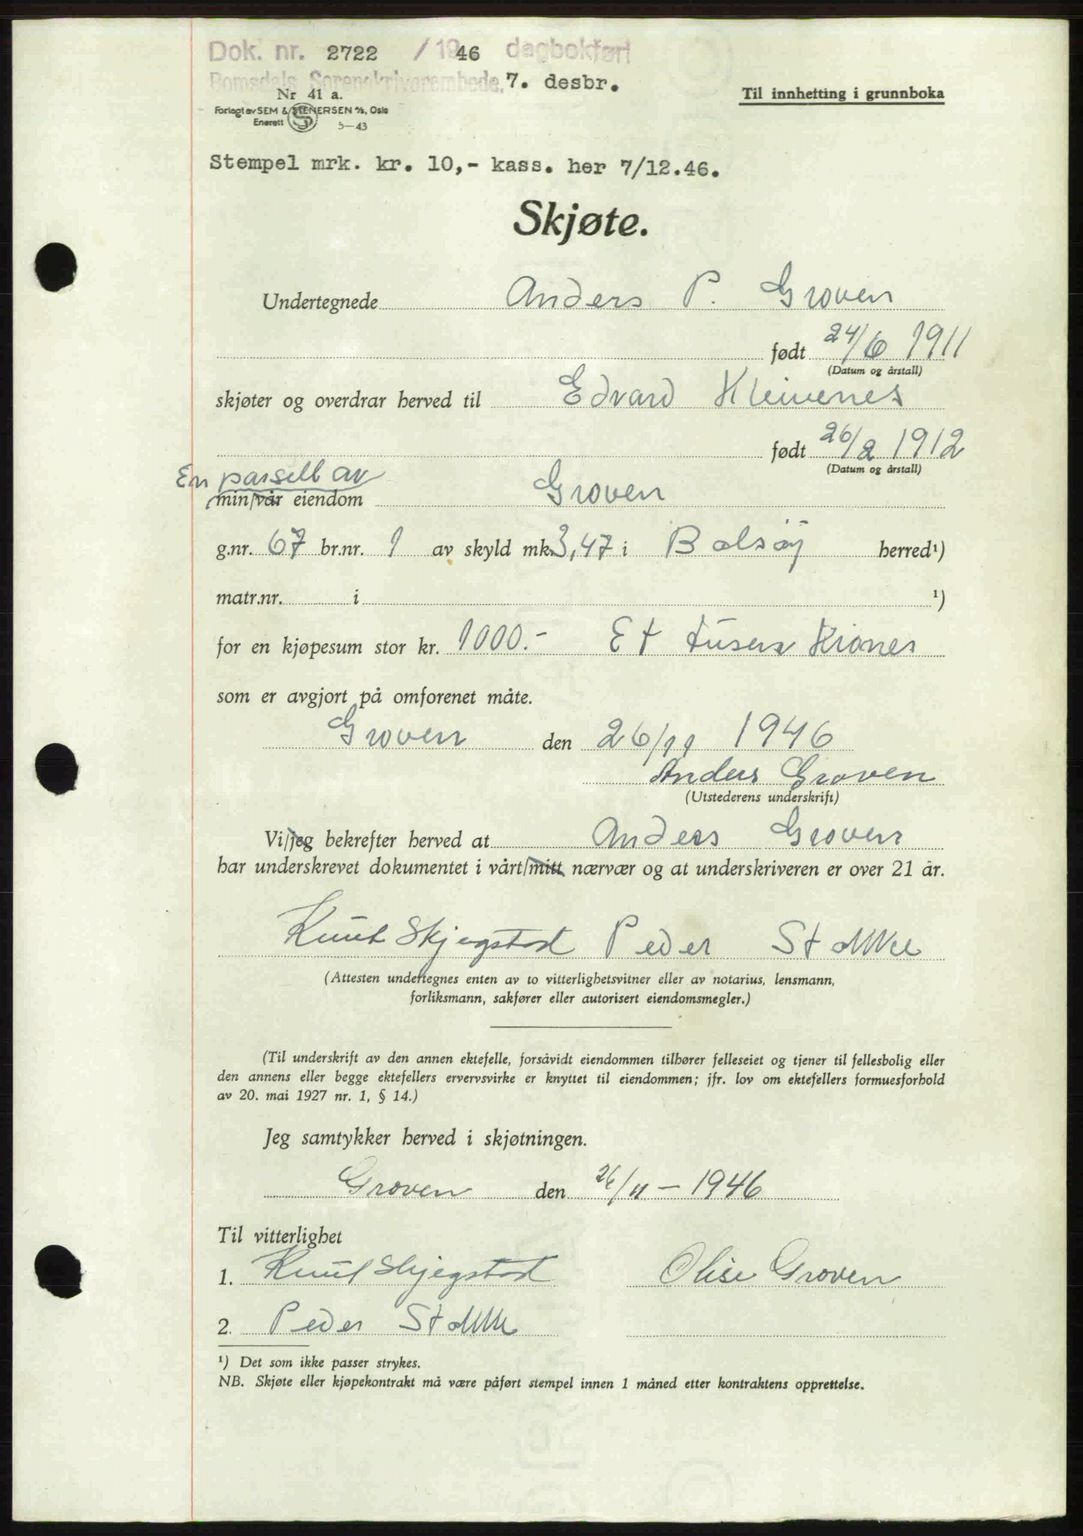 Dok. nr. 2722 / 1946 dagbokført
Romsdals Sorenskriverembede, 7. desbr.
Nr 41 a.
Forlagt av SEM & STENERSEN A/S, Oslo
Enerett 5—43
Til innhefting i grunnboka
Stempel mrk. kr. 10,- kass. her 7/12.46.
Skjøte.
Undertegnede Anders P. Groven
født 24/6 1911
(Datum og årstall)
skjøter og overdrar herved til Edvard Kleivenes
født 26/2 1912
(Datum og årstall)
En parsell av
min/vår eiendom Groven
g.nr. 67 br.nr. 1 av skyld mk. 3,47 i Bolsøy herred¹)
matr.nr. i ¹)
for en kjøpesum stor kr. 1000.- Et tusen Kroner
som er avgjort på omforenet måte.
Groven den 26/11 1946
Anders Groven
(Utstederens underskrift)
Vi/jeg bekrefter herved at Anders Groven
har underskrevet dokumentet i vårt/mitt nærvær og at underskriveren er over 21 år.
Knut Skjegstad Peder
(Attesten undertegnes enten av to vitterlighetsvitner eller av notarius, lensmann,
forliksmann, sakfører eller autorisert eiendomsmegler.)
(Til underskrift av den annen ektefelle, forsåvidt eiendommen tilhører felleseiet og tjener til fellesbolig eller
den annens eller begge ektefellers ervervsvirke er knyttet til eiendommen; jfr. lov om ektefellers formuesforhold
av 20. mai 1927 nr. 1, § 14.)
Jeg samtykker herved i skjøtningen.
Groven den 26/11 - 1946
Til vitterlighet
1. Knut Skjegstad Olise Groven
2. Peder
¹) Det som ikke passer strykes.
NB. Skjøte eller kjøpekontrakt må være påført stempel innen 1 måned etter kontraktens opprettelse.